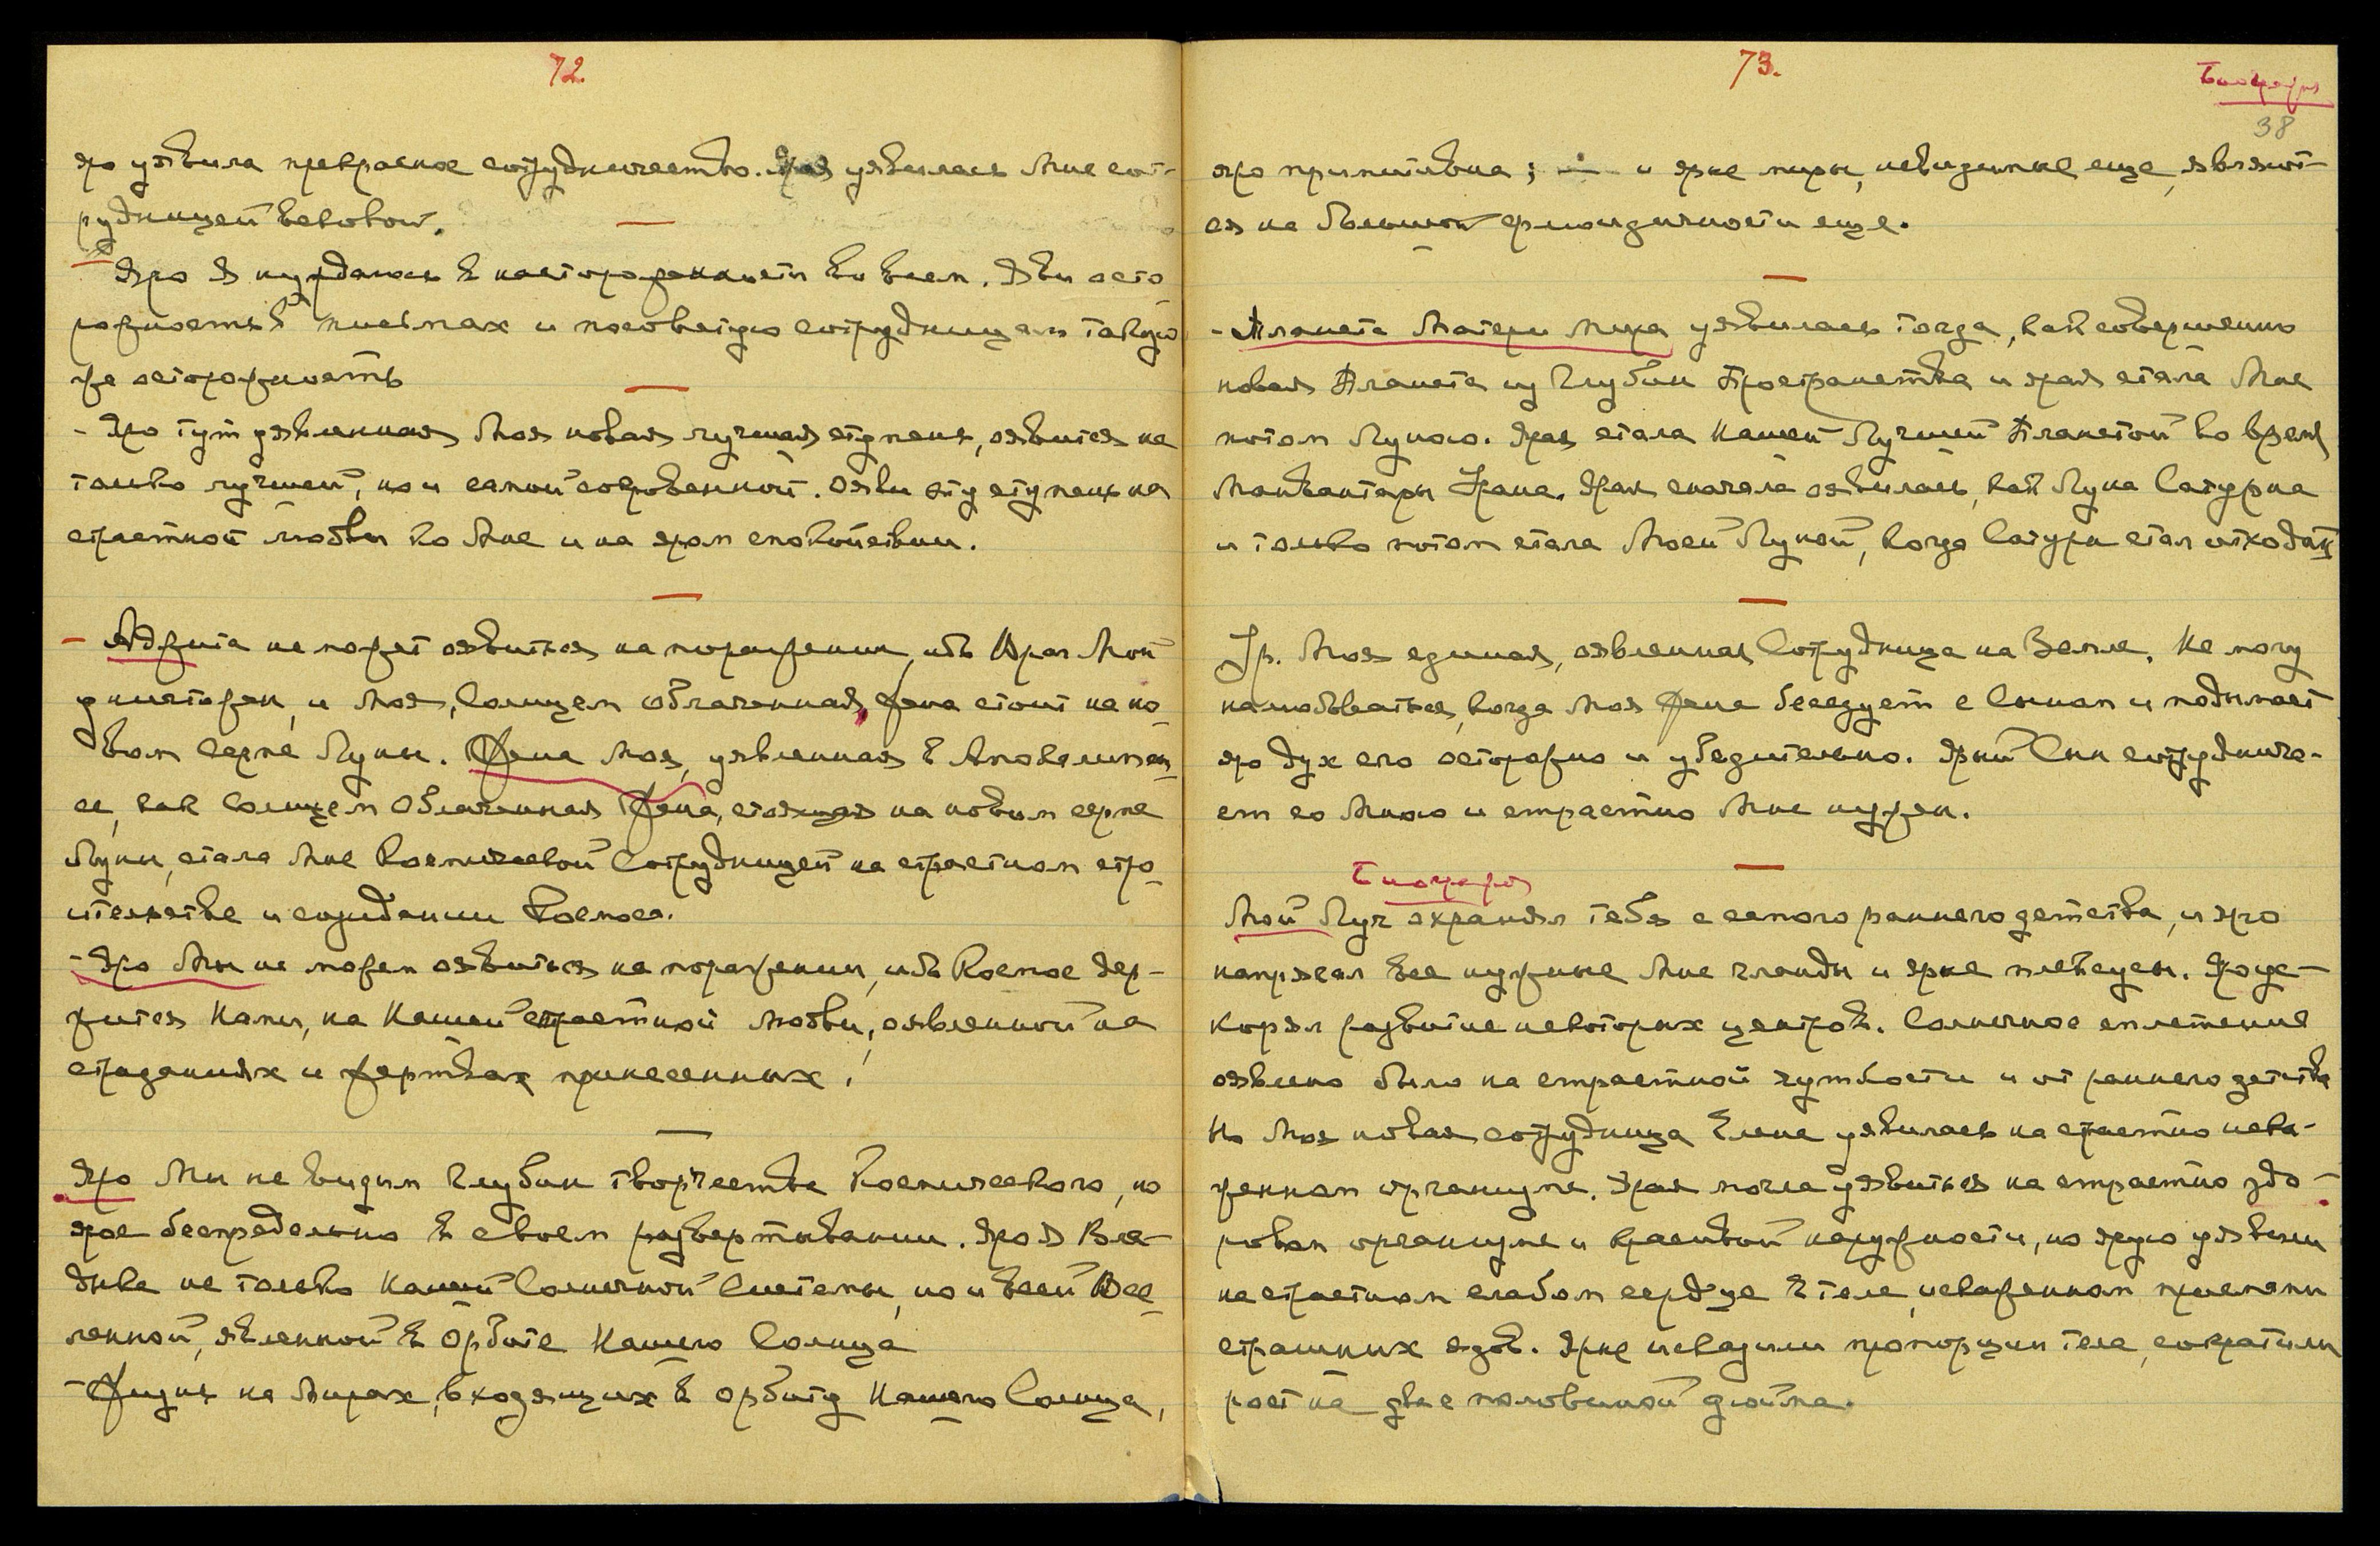 72.
яро уявила прекрасное сотрудничество. Ярая уявилась Мне сот-
рудницей Вековой.
Яро Я нуждаюсь в настороженности во всем. Яви осто-
рожность в письмах и посоветую сотрудницам такую
же осторожность
- Яро тут уявленная Моя новая лучшая ступень, оявится не
только лучшей, но и самой сокровенной. Ояви эту ступень на
страстной любви ко Мне и на яром спокойствии.
- Аджита не может оявиться на поражении, ибо Враг Мой
уничтожен, и Моя, Солнцем облаченная, Жена стоит на но-
вом серпе Луны. Жена Моя, уявленная в Апокалипси-
се, как Солнцем Облаченная Жена, стоящая на новом серпе
Луны, стала Мне Космической Сотрудницей на страстном стро-
ительстве и созидании Космоса.
- Яро Мы не можем оявиться на поражении, ибо Космос дер-
жится Нами, на Нашей страстной любви, оявленной на
страданиях и жертвах принесенных.
Яро Мы не видим Глубин творчества Космического, но
ярое беспредельно в своем развертывании. Яро Я Вла-
дыка не только Нашей Солнечной Системы, но и всей Все-
ленной, явленной в Орбите Нашего Солнца
- Жизнь на Мирах, входящих в Орбиту Нашего Солнца,
73.
Биограф
38
яро примитивна; и ярые миры, невидимые еще, являют-
ся на большой флюидичности еще.
- Планета Матери Мира уявилась тогда, как совершенно
новая Планета из Глубин Пространства и ярая стала Мне
потом Луною. Ярая стала Нашей Лучшей Планетой во время
Манвантары Урана. Ярая сначала оявилась, как Луна Сатурна
и только потом стала Моей Луной, когда Сатурн стал отходить
Ур. Моя единая, оявленная Сотрудница на Земле. Не могу
налюбоваться, когда Моя Жена беседует с Сыном и подымает
яро дух его осторожно и убедительно. Ярый Сын сотруднича-
ет со Мною и страстно Мне нужен.
Биограф
Мой Луч охранял тебя с самого раннего детства, и яро
напрягал все нужные Мне гланды и ярые плексусы. Яро ус-
корял развитие некоторых центров. Солнечное сплетение
оявлено было на страстной чуткости и от раннего детства
Но Моя новая сотрудница Елена уявилась на страстно иска-
женном организме. Ярая могла уявиться на страстно здо-
ровом организме и красивой наружности, но ярую уявили
на страстном слабом сердце в теле, искаженном приемами
страшных ядов. Ярые исказили пропорции тела, сократили
рост на два с половиной дюйма.